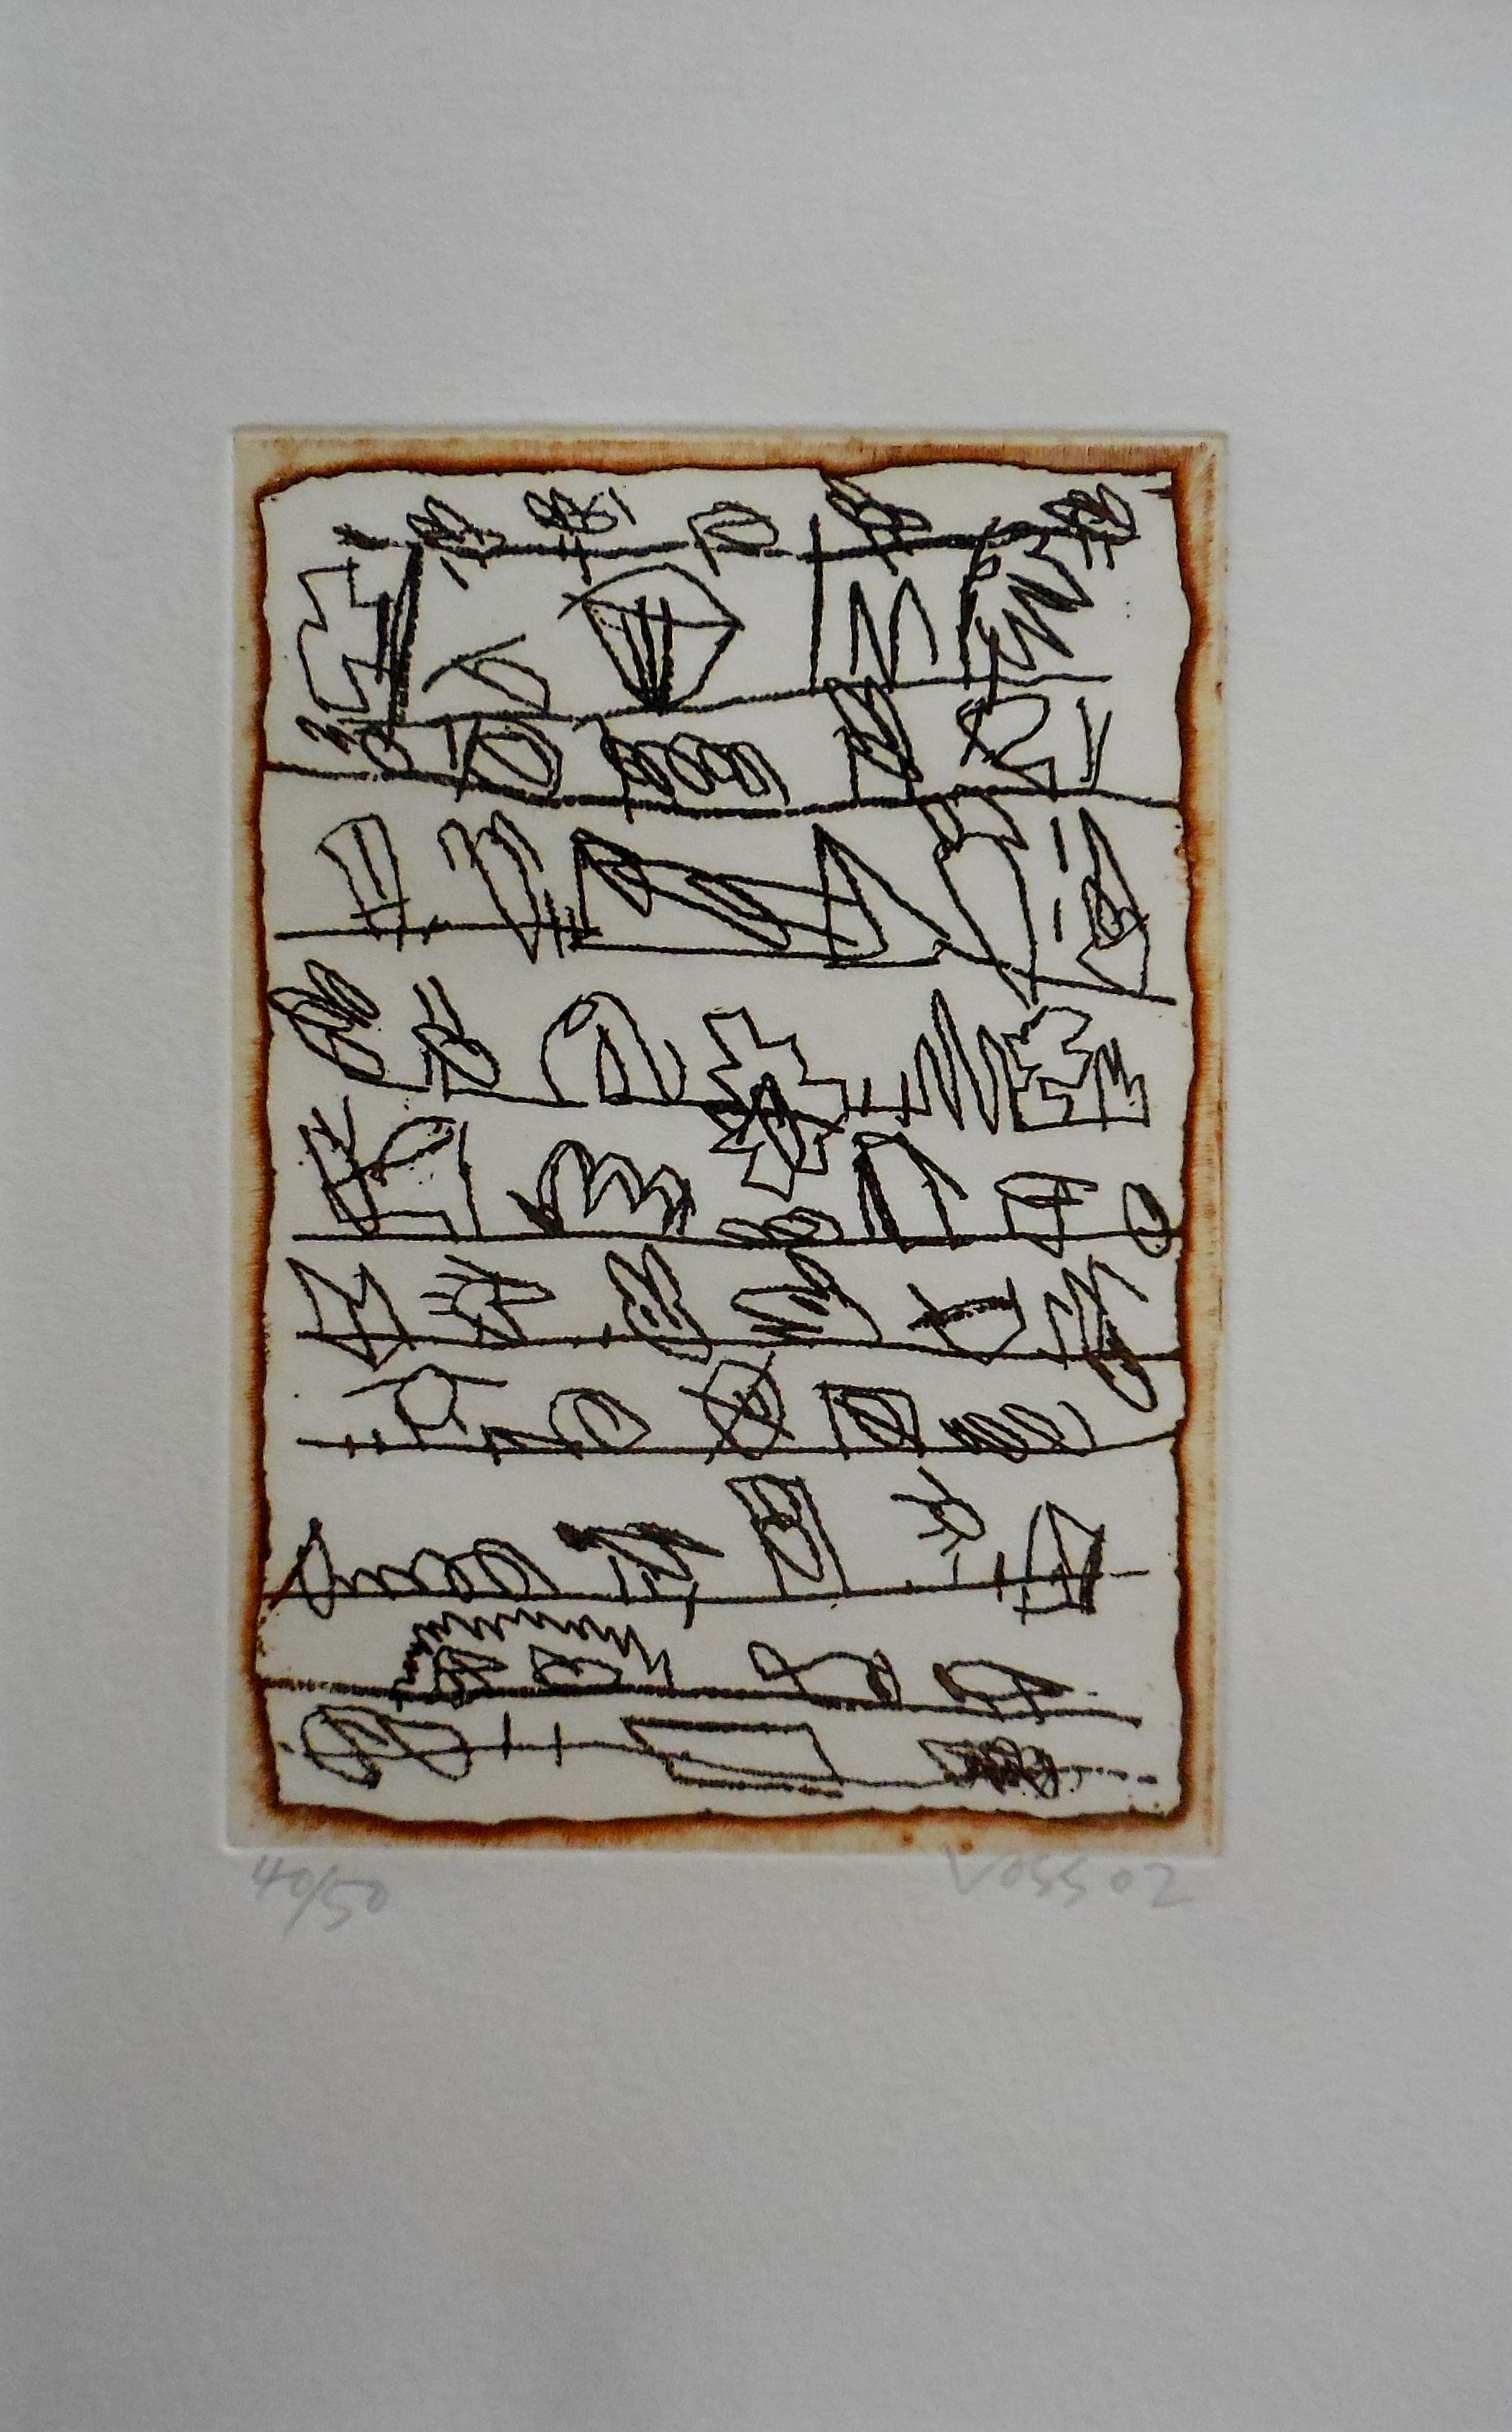 40/50 Voss 02